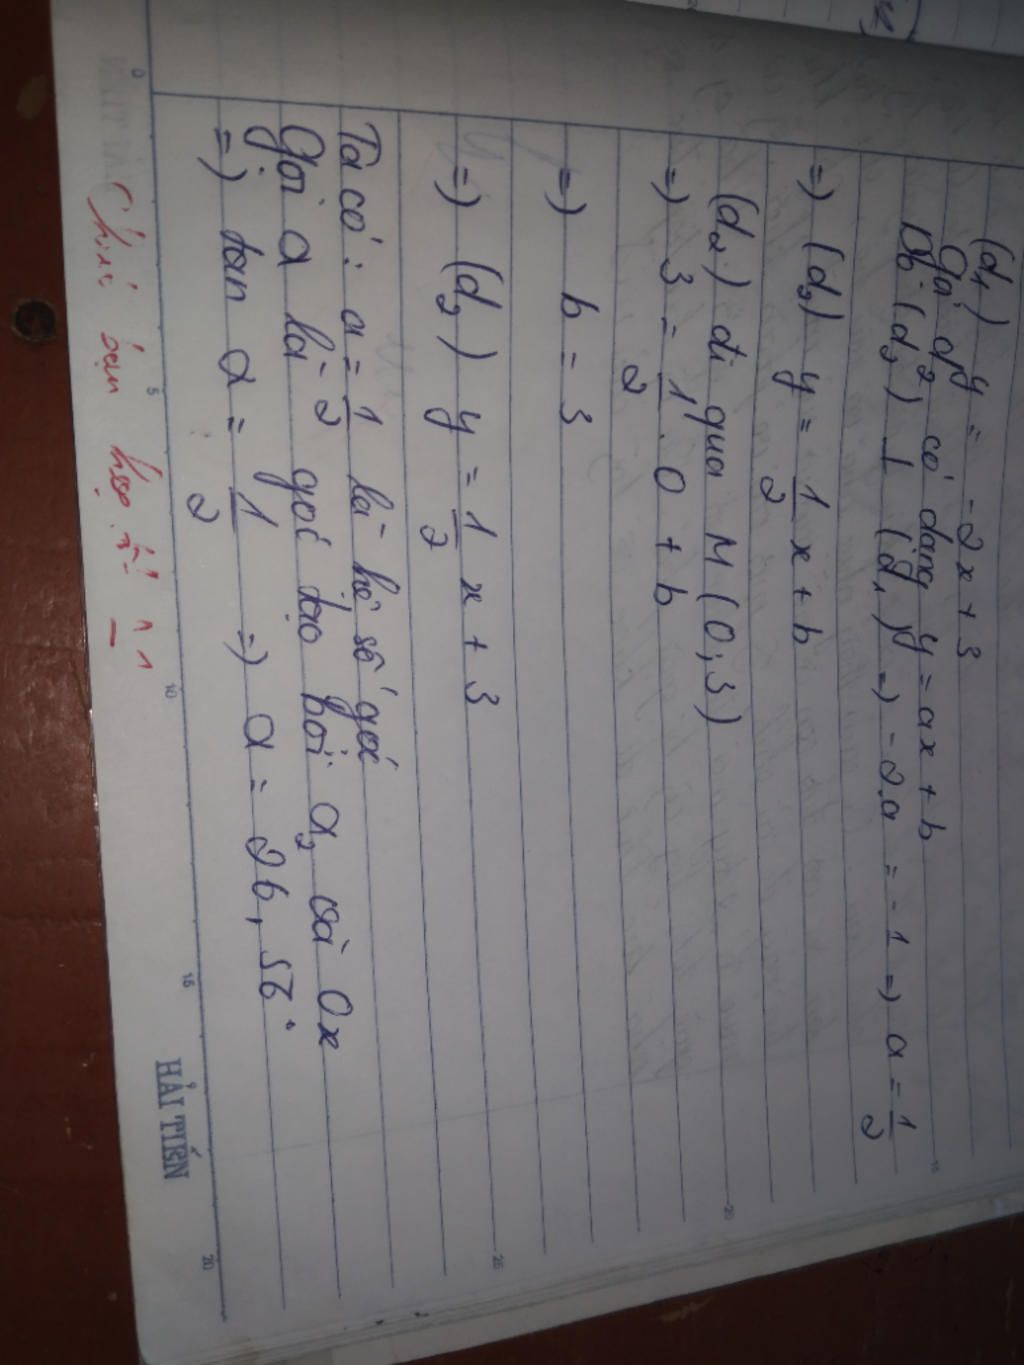 (d₁) y = -2x + 3
Gs' d₂ có dạng y = ax + b
Do (d₂) ⊥ (d₁) => -2.a = -1 => a = 1/2
=> (d₂) y = 1/2 x + b
(d₂) đi qua M (0; 3)
=> 3 = 1/2 . 0 + b
=> b = 3
=> (d₂) y = 1/2 x + 3
Ta có : a = 1/2 là hệ số góc
Gọi α là góc tạo bởi d₂ và Ox
=> tan α = 1/2 => α = 26,56°
Chúc bạn học tốt ^^
HẢI TIẾN
0
5
10
15
20
15
20
25